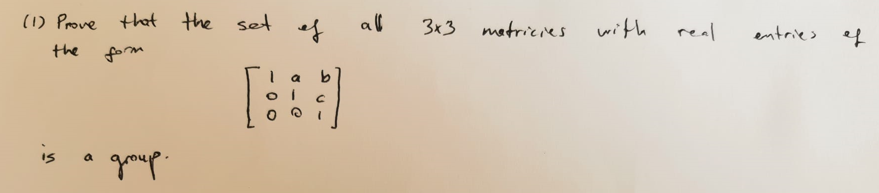 (1) Prove that the set of all 3x3 matricies with real entries of
the form
[1 a b
0 1 c
0 0 1]
is a group.